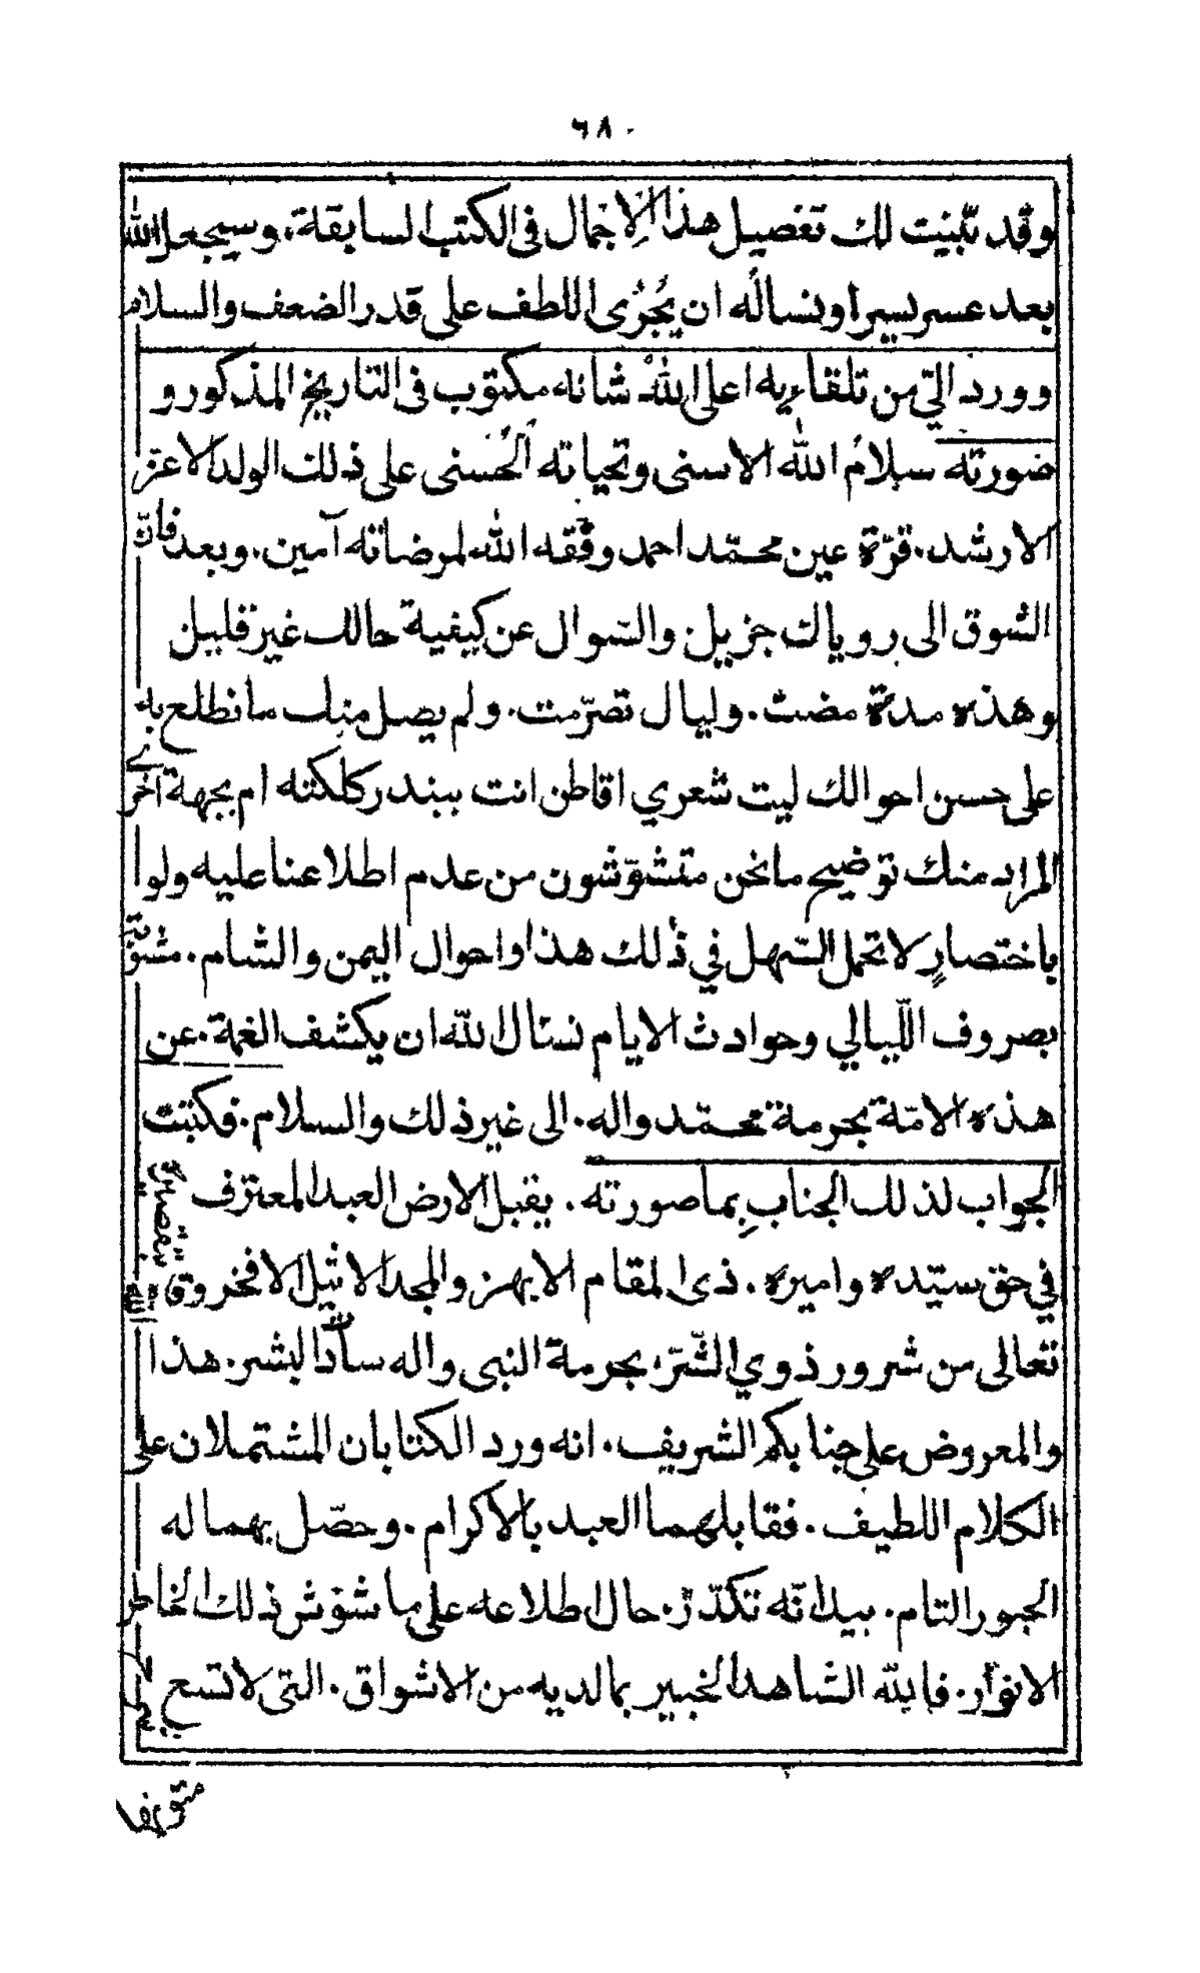 ٦٨٠
وقد تبينت لك تفصيل هذا الاجمال فى الكتب السابقة. وسيجعل الله
بعد عسر يسيرا ونسأله ان يجرى اللطف على قدر الضعف والسلام
وورد الىّ من تلقاءيه اعلى الله شانه مكتوب فى التاريخ المذكور و
صورته سلام الله الاسنى وتحياته الحسنى على ذلك الولد الاعز
الارشد. قرّة عين محمّد احمد وفّقه الله لمرضاته آمين. وبعد فانّ
الشوق الى روياك جزيل والسوال عن كيفية حالك غير قليل
وهذه مدة مضت. وليال تصرّمت. ولم يصل منك ما نطلع به
على حسن احوالك ليت شعري اقاطن انت ببندر كلكته ام بجهة اخرى
المراد منك توضيح ما نحن متشوّشون من عدم اطلاعنا عليه ولو ا
باختصارٍ لا تحمل السهل في ذلك هذا واحوال اليمن والشام. مشوّشة
بصروف اللّيالي وحوادث الايام نسئال الله ان يكشف الغمة. عن
هذه الامّة بحرمة محمّد واله. الى غير ذلك والسلام. فكتبت
الجواب لذلك الجنابِ بما صورته. يقبل الارض العبد المعترف بتقصيره
في حق سيّده واميره. ذى المقام الابهر والمجد الاثيل الافخر وقاه الله
تعالى من شرور ذوي الشّرّ، بحرمة النبى واله سادات البشر. هذا
والمعروض على جنابكم الشريف. انه ورد الكتابان المشتملان على
الكلام اللطيف. فقابلهما العبد بالاكرام. وحصّل بهما له
الحبور التام. بيد انّه تكدّر. حال اطلاعه على ما شوّش ذلك الخاطر
الانوار. فالله الشاهد الخبير بما لديه من الاشواق. التى لا تسع